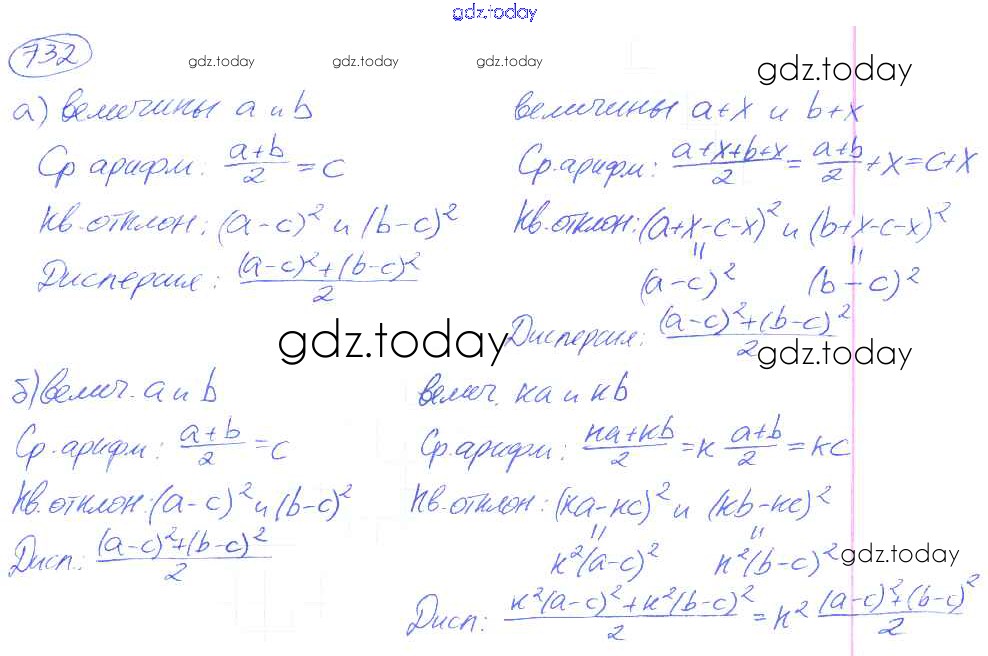 gdz.today
732
gdz.today gdz.today gdz.today gdz.today
а) величины a и b
Ср арифм: (a+b)/2 = c
Кв. отклон: (a-c)² и (b-c)²
Дисперсия: ((a-c)²+(b-c)²)/2
величины a+x и b+x
Ср. арифм: (a+x+b+x)/2 = (a+b)/2 + x = c+x
Кв. отклон: (a+x-c-x)² и (b+x-c-x)²
= =
(a-c)² (b-c)²
Дисперсия: ((a-c)²+(b-c)²)/2
gdz.today gdz.today
б) велич. a и b
Ср. арифм: (a+b)/2 = c
Кв. отклон: (a-c)² и (b-c)²
Дисп: ((a-c)²+(b-c)²)/2
велич. кa и кb
Ср. арифм: (кa+кb)/2 = к (a+b)/2 = кc
Кв. отклон: (кa-кc)² и (кb-кc)²
= =
к²(a-c)² к²(b-c)² gdz.today
Дисп: (к²(a-c)²+к²(b-c)²)/2 = к² ((a-c)²+(b-c)²)/2